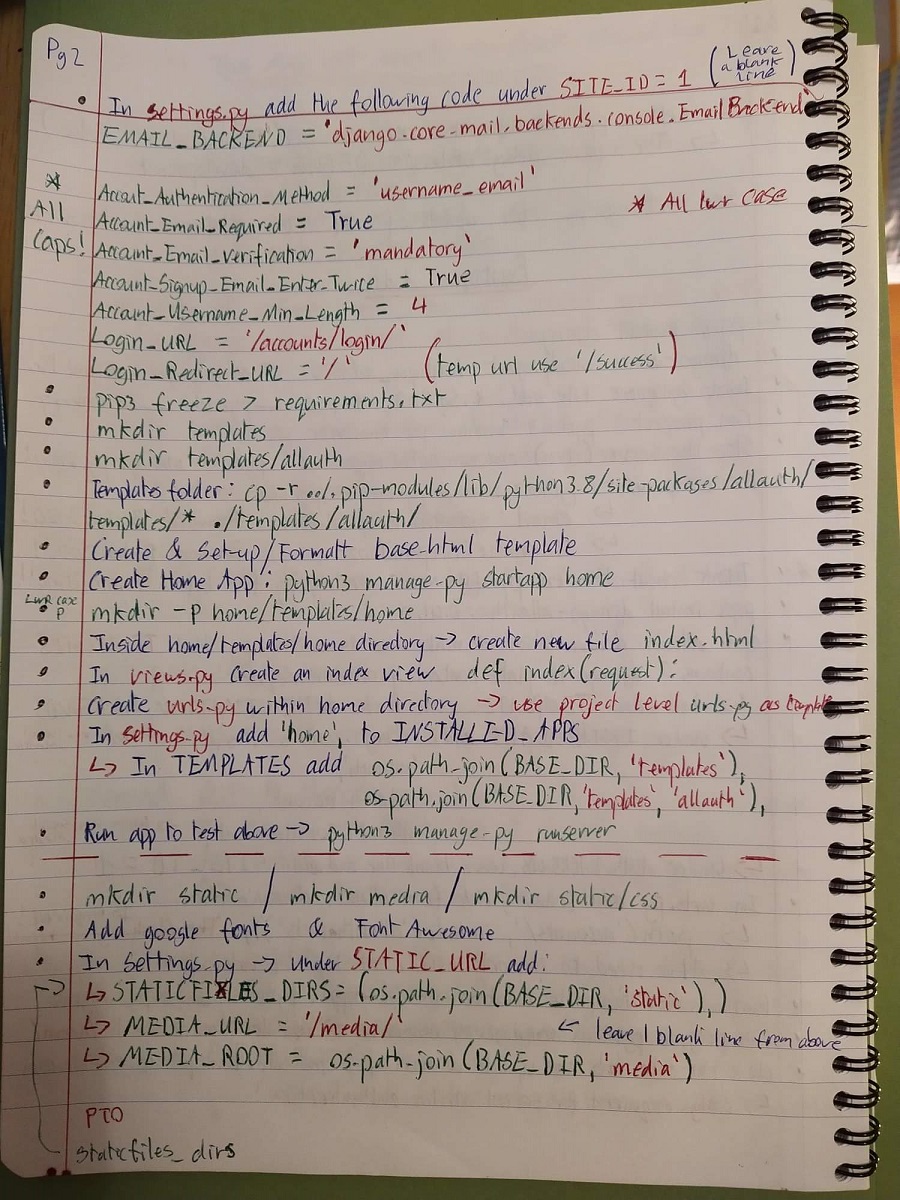 Pg 2
(Leave a blank line)
• In settings.py add the following code under SITE_ID = 1
EMAIL_BACKEND = 'django.core.mail.backends.console.EmailBackend'
* All Caps!
Account_Authentication_Method = 'username_email'
* All lwr case
Account_Email_Required = True
Account_Email_Verification = 'mandatory'
Account_Signup_Email_Enter_Twice = True
Account_Username_Min_Length = 4
Login_URL = '/accounts/login/'
Login_Redirect_URL = '/' (temp url use '/success')
• pip3 freeze > requirements.txt
• mkdir templates
• mkdir templates/allauth
• Templates folder: cp -r ../.pip-modules/lib/python3.8/site-packages/allauth/
templates/* ./templates/allauth/
• Create & Set-up/Formatt base.html template
• Create Home App: python3 manage.py startapp home
Lwr case p
• mkdir -p home/templates/home
• Inside home/templates/home directory → create new file index.html
• In views.py create an index view def index(request):
• Create urls.py within home directory → use project level urls.py as template
• In settings.py add 'home', to INSTALLED_APPS
↳ In TEMPLATES add os.path.join(BASE_DIR, 'templates'),
os.path.join(BASE_DIR, 'templates', 'allauth'),
• Run app to test above → python3 manage.py runserver
• mkdir static / mkdir media / mkdir static/css
• Add google fonts & Font Awesome
• In settings.py → under STATIC_URL add:
↳ STATICFILES_DIRS = (os.path.join(BASE_DIR, 'static'),)
↳ MEDIA_URL = '/media/' ← leave 1 blank line from above
↳ MEDIA_ROOT = os.path.join(BASE_DIR, 'media')
PTO
staticfiles_dirs